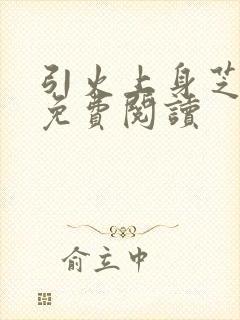 引火上身芝
免費閱讀
俞立中